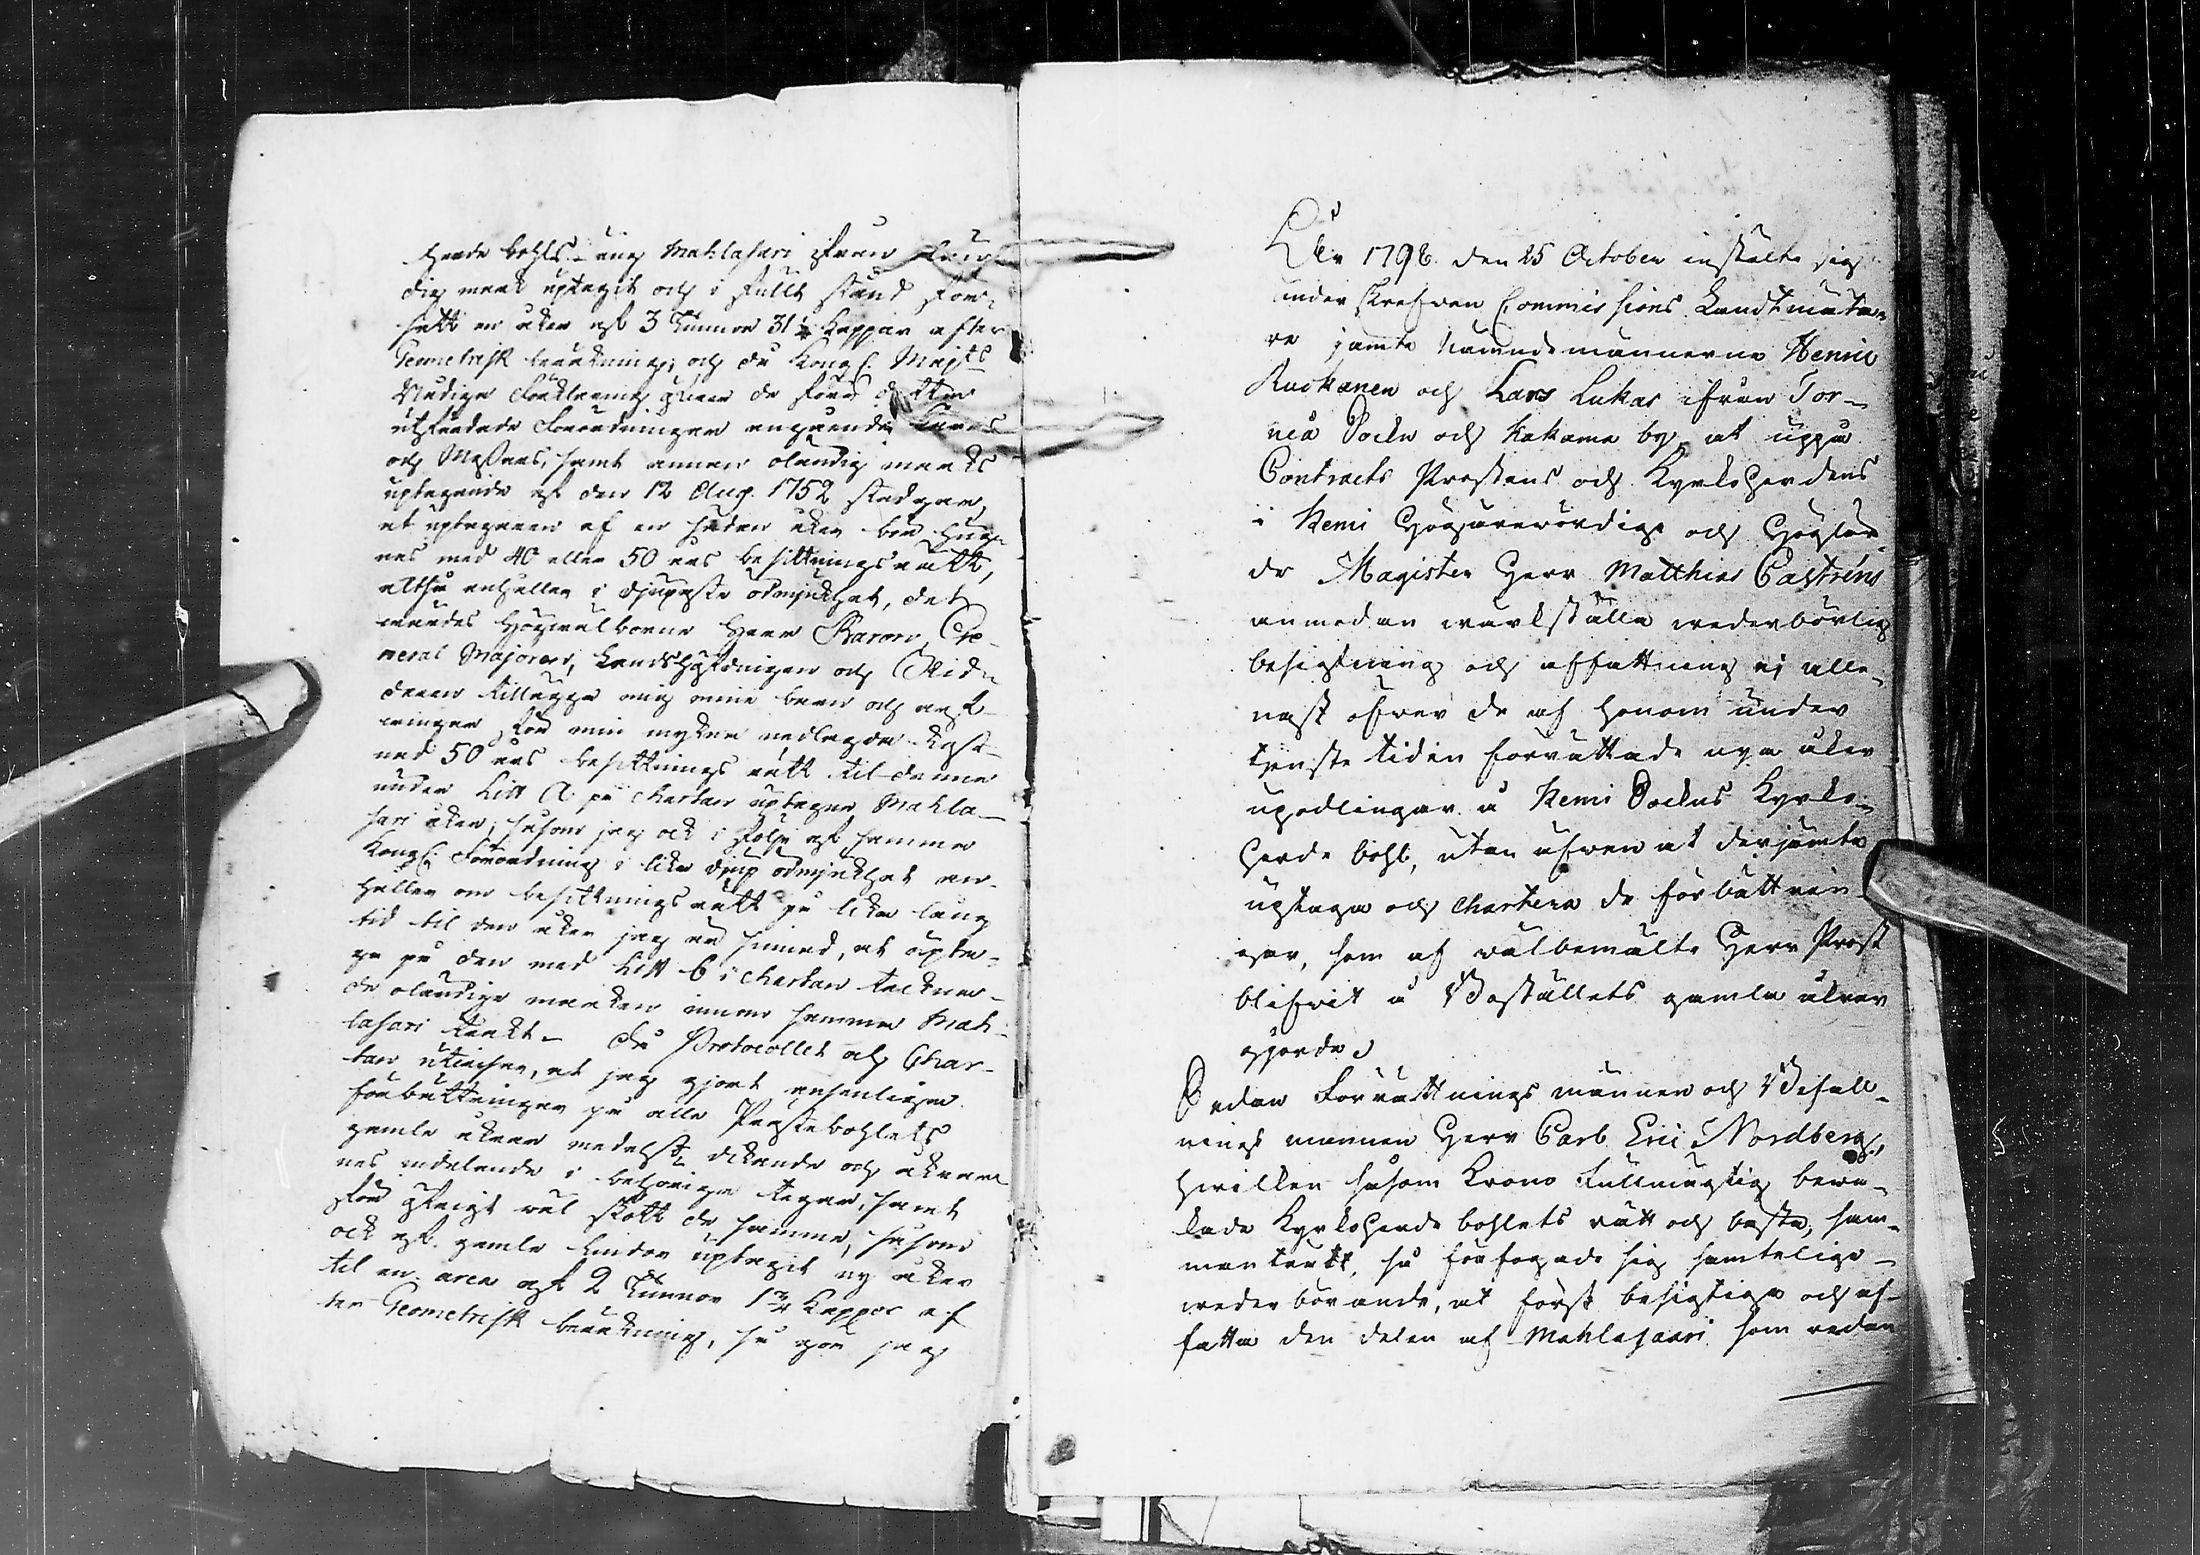 herde bohls äng Mahlasari ifrån
dig mark uptagit och i fullt stånd för-
satt en åker af 3 Tunnor 31 1/4 Kappar efter
Geometrisk beräkning; och då Kongl. Majts
Nådiga Förklaring öfver de förr
utfärdade Förordningar angående Kärrs
och Måssars, samt annan oländig marks
uptagande af den 12 Aug. 1752 stadgar,
at uptagaren af en sådan åker bör hug-
nas med 40 eller 50 års besittnings rätt,
altså anhåller i djupaste ödmjukhet, det
täcktes Högwälborne Herr Baron, Ge-
neral Majoren, Landshöfdingen och Rid-
daren tillägga mig mine barn och arf-
wingar för min myckna nedlagda kost-
nad 50 års besittnings rätt til denne
under Litt A på Chartan uptagne Mahla-
sari åker; såsom jag ock i följe af samma
Kongl. Förordning i lika djup ödmjukhet an-
håller om besittnings rätt på lika lång
tid til den åker jag är sinnad, at upta-
ga på den med Litt B i Chartan teckna-
de oländiga marken innom samma Mah-
lasari trakt. Då Protocollet och Char-
tan utwisar, at jag gjort ansenliga
förbättringar på alla Prästebohlets
gamla åkrar medelst dikande och åkrar-
nas indelande i behöriga tegar, samt
för öfrigt wäl skött de samma, såsom
ock af gamla lindor uptagit ny åker
til en area af 2 Tunnor 1 3/4 Kappar ef-
ter Geometrisk beräkning, så gör jag
År 1796 den 25 October instälte sig
under skrefwen Commissions Landtmäta-
re jämte Nämndemännerne Henric
Ruokanen och Lars Lukas ifrån Tor-
neå Sockn och Kakama by, at uppå
Contracts Prostens och Kyrkoherdens
i Kemi Högärewördige och Höglär-
de Magister Herr Matthias Castréns
anmodan wärkställa wederbörlig
besigtning och affattning ej alle-
nast öfwer de af honom under
tjenste tiden förrättade nya åker
upodlingar å Kemi Sockns Kyrko-
herde bohl, utan äfwen at derjämte
uptaga och chartera de förbättrin-
gar, som af wälbemälte Herr Prost
blifwit å Boställets gamla åkrar
gjorde.
Sedan Förrättnings männen och Befall-
nings mannen Herr Carl Eric Nordberg,
hwilken såsom Krono Fullmägtig bewa-
kade Kyrkoherde bohlets rätt och bästa, sam-
manträdt, så förfogade sig samtelige
wederbörande, at först besigtiga och af-
fatta den delen af Mahlasaari som redan